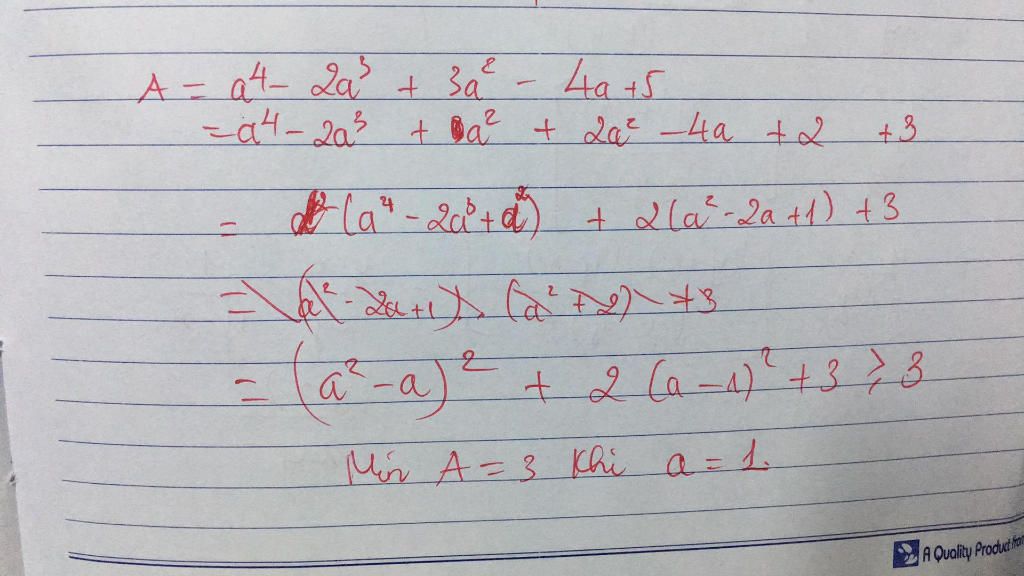 A = a⁴ - 2a³ + 3a² - 4a + 5
= a⁴ - 2a³ + a² + 2a² - 4a + 2 + 3
= (a⁴ - 2a³ + a²) + 2(a² - 2a + 1) + 3
= (a² - 2a + 1) (a² + 2) + 3
= (a² - a)² + 2 (a - 1)² + 3 ⩾ 3
Min A = 3 khi a = 1.
A Quality Product from